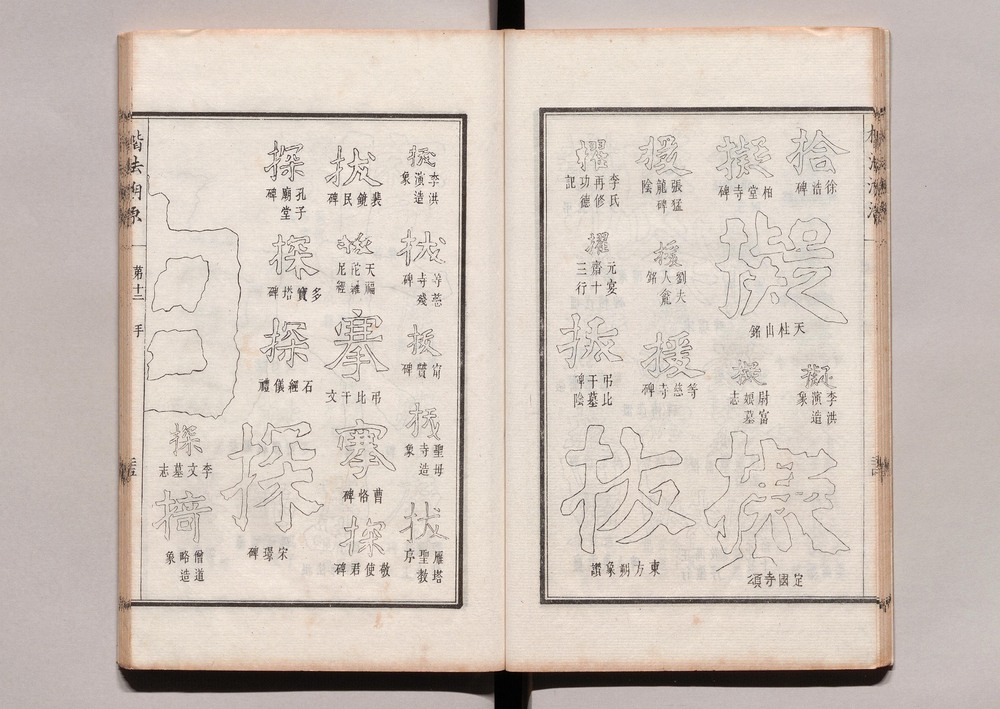 拾
徐浩碑
擬
柏堂寺碑
擬
天柱山銘
李洪
演造
象
尉富
娘墓
志
定國寺頌
援
張猛
龍碑
陰
援
劉大
人龕
銘
援
等慈寺碑
擢
李氏
再修
功德
記
擢
元宴
齋十
三行
弔比
干墓
碑陰
拔
東方朔象讚
李洪
演造
象
拔
等慈
寺殘
碑
拔
甯贙碑
拔
聖母
寺造
象
拔
雁塔
聖教
序
拔
裴鏡民碑
天福
陀羅
尼經
搴
弔比干文
搴
曹恪碑
探
敬使君碑
探
孔子
廟堂
碑
探
多寶塔碑
探
石經儀禮
探
宋璟碑
探
李文墓志
擣
僧道
略造
象
楷法溯源
第十二
手